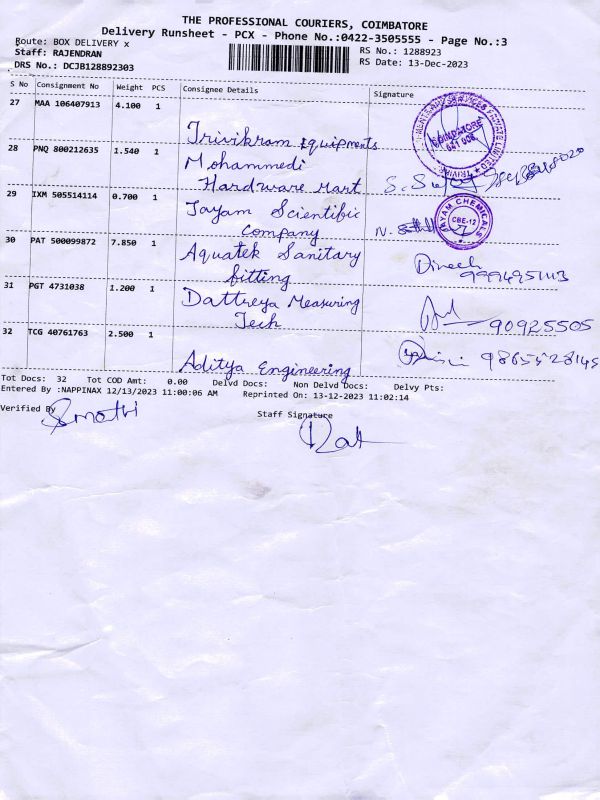 THE PROFESSIONAL COURIERS, COIMBATORE
Delivery Runsheet - PCX - Phone No.:0422-3505555 - Page No.:3
Route: BOX DELIVERY x
RS No.: 1288923
Staff: RAJENDRAN
RS Date: 13-Dec-2023
DRS No.: DCJB128892303
S No Consignment No Weight PCS Consignee Details Signature
27 MAA 106407913 4.100 1
Trivikram Equipments
COIMBATORE
641 006
28 PNQ 800212635 1.540 1
Mohammedi
Hardware Mart
29 IXM 505514114 0.700 1
Jayam Scientific
Company
N.
JAYAM CHEMICALS
CBE-12
30 PAT 500099872 7.850 1
Aquatek Sanitary
fitting
Dinesh
31 PGT 4731038 1.200 1
Dattreya Measuring
Tech
90925505
32 TCG 40761763 2.500 1
Aditya Engineering
Tot Docs: 32 Tot COD Amt: 0.00 Delvd Docs: Non Delvd Docs: Delvy Pts:
Entered By :NAPPINAX 12/13/2023 11:00:06 AM Reprinted On: 13-12-2023 11:02:14
Verified By
Staff Signature